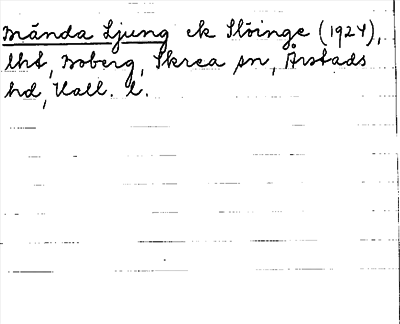 Brända Ljung ek Slöinge (1924),
lht, Boberg, Skrea sn, Årstads
hd, Hall. l.